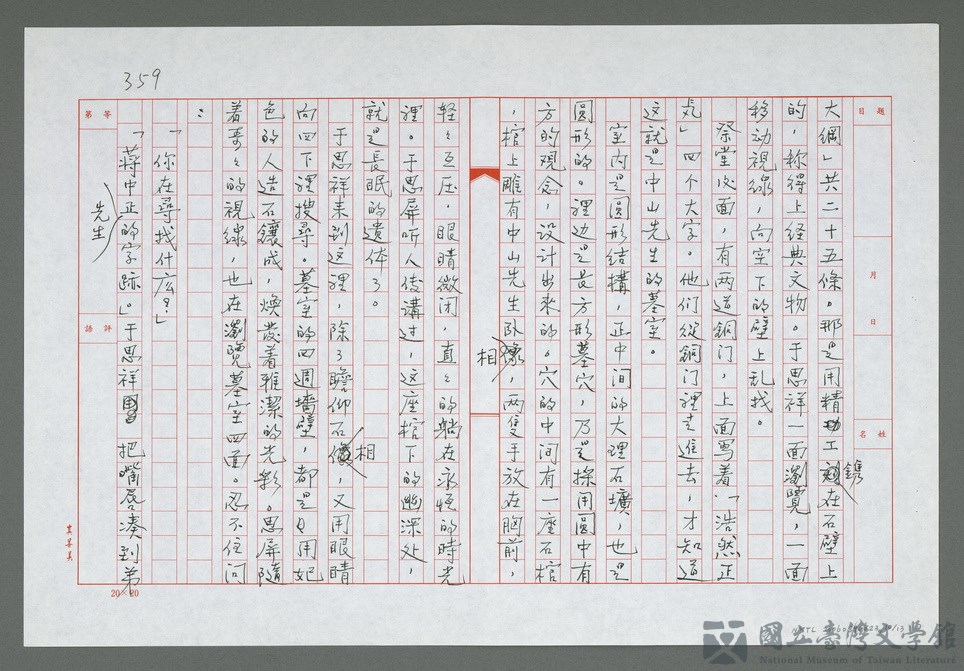 359
題目
月 日
姓名
大綱」共二十五條。那是用精工鐫在石壁上
的,称得上经典文物。于思祥一面瀏覽,一面
移动視線,向空下的壁上乱找。
祭堂后面,有两道銅门,上面写着「浩然正
氣」四个大字。他們從銅门裡走進去,才知道
这就是中山先生的墓室。
室内是圆形结構,正中间的大理石壙,也是
圓形的。裡边是長方形墓穴,乃是採用圓中有
方的观念,设计出来的。穴的中间有一座石棺
,棺上雕有中山先生卧相,两隻手放在胸前,
轻々互压,眼睛微闭,直々的躺在永恒的時光
裡。于思屏听人传講过,这座棺下的幽深处,
就是長眠的遗体了。
于思祥来到这裡,除了瞻仰石相,又用眼睛
向四下裡搜尋。墓室的四週墙壁,都是用妃
色的人造石鑲成,焕发着雅潔的光彩。思屏隨
着哥々的視線,也在瀏覽墓室四面。忍不住问
:
「你在尋找什庅?」
「蔣中正先生的字跡。」于思祥把嘴唇凑到弟
等第
評語
20×20
國立臺灣文學館
National Museum of Taiwan Literature